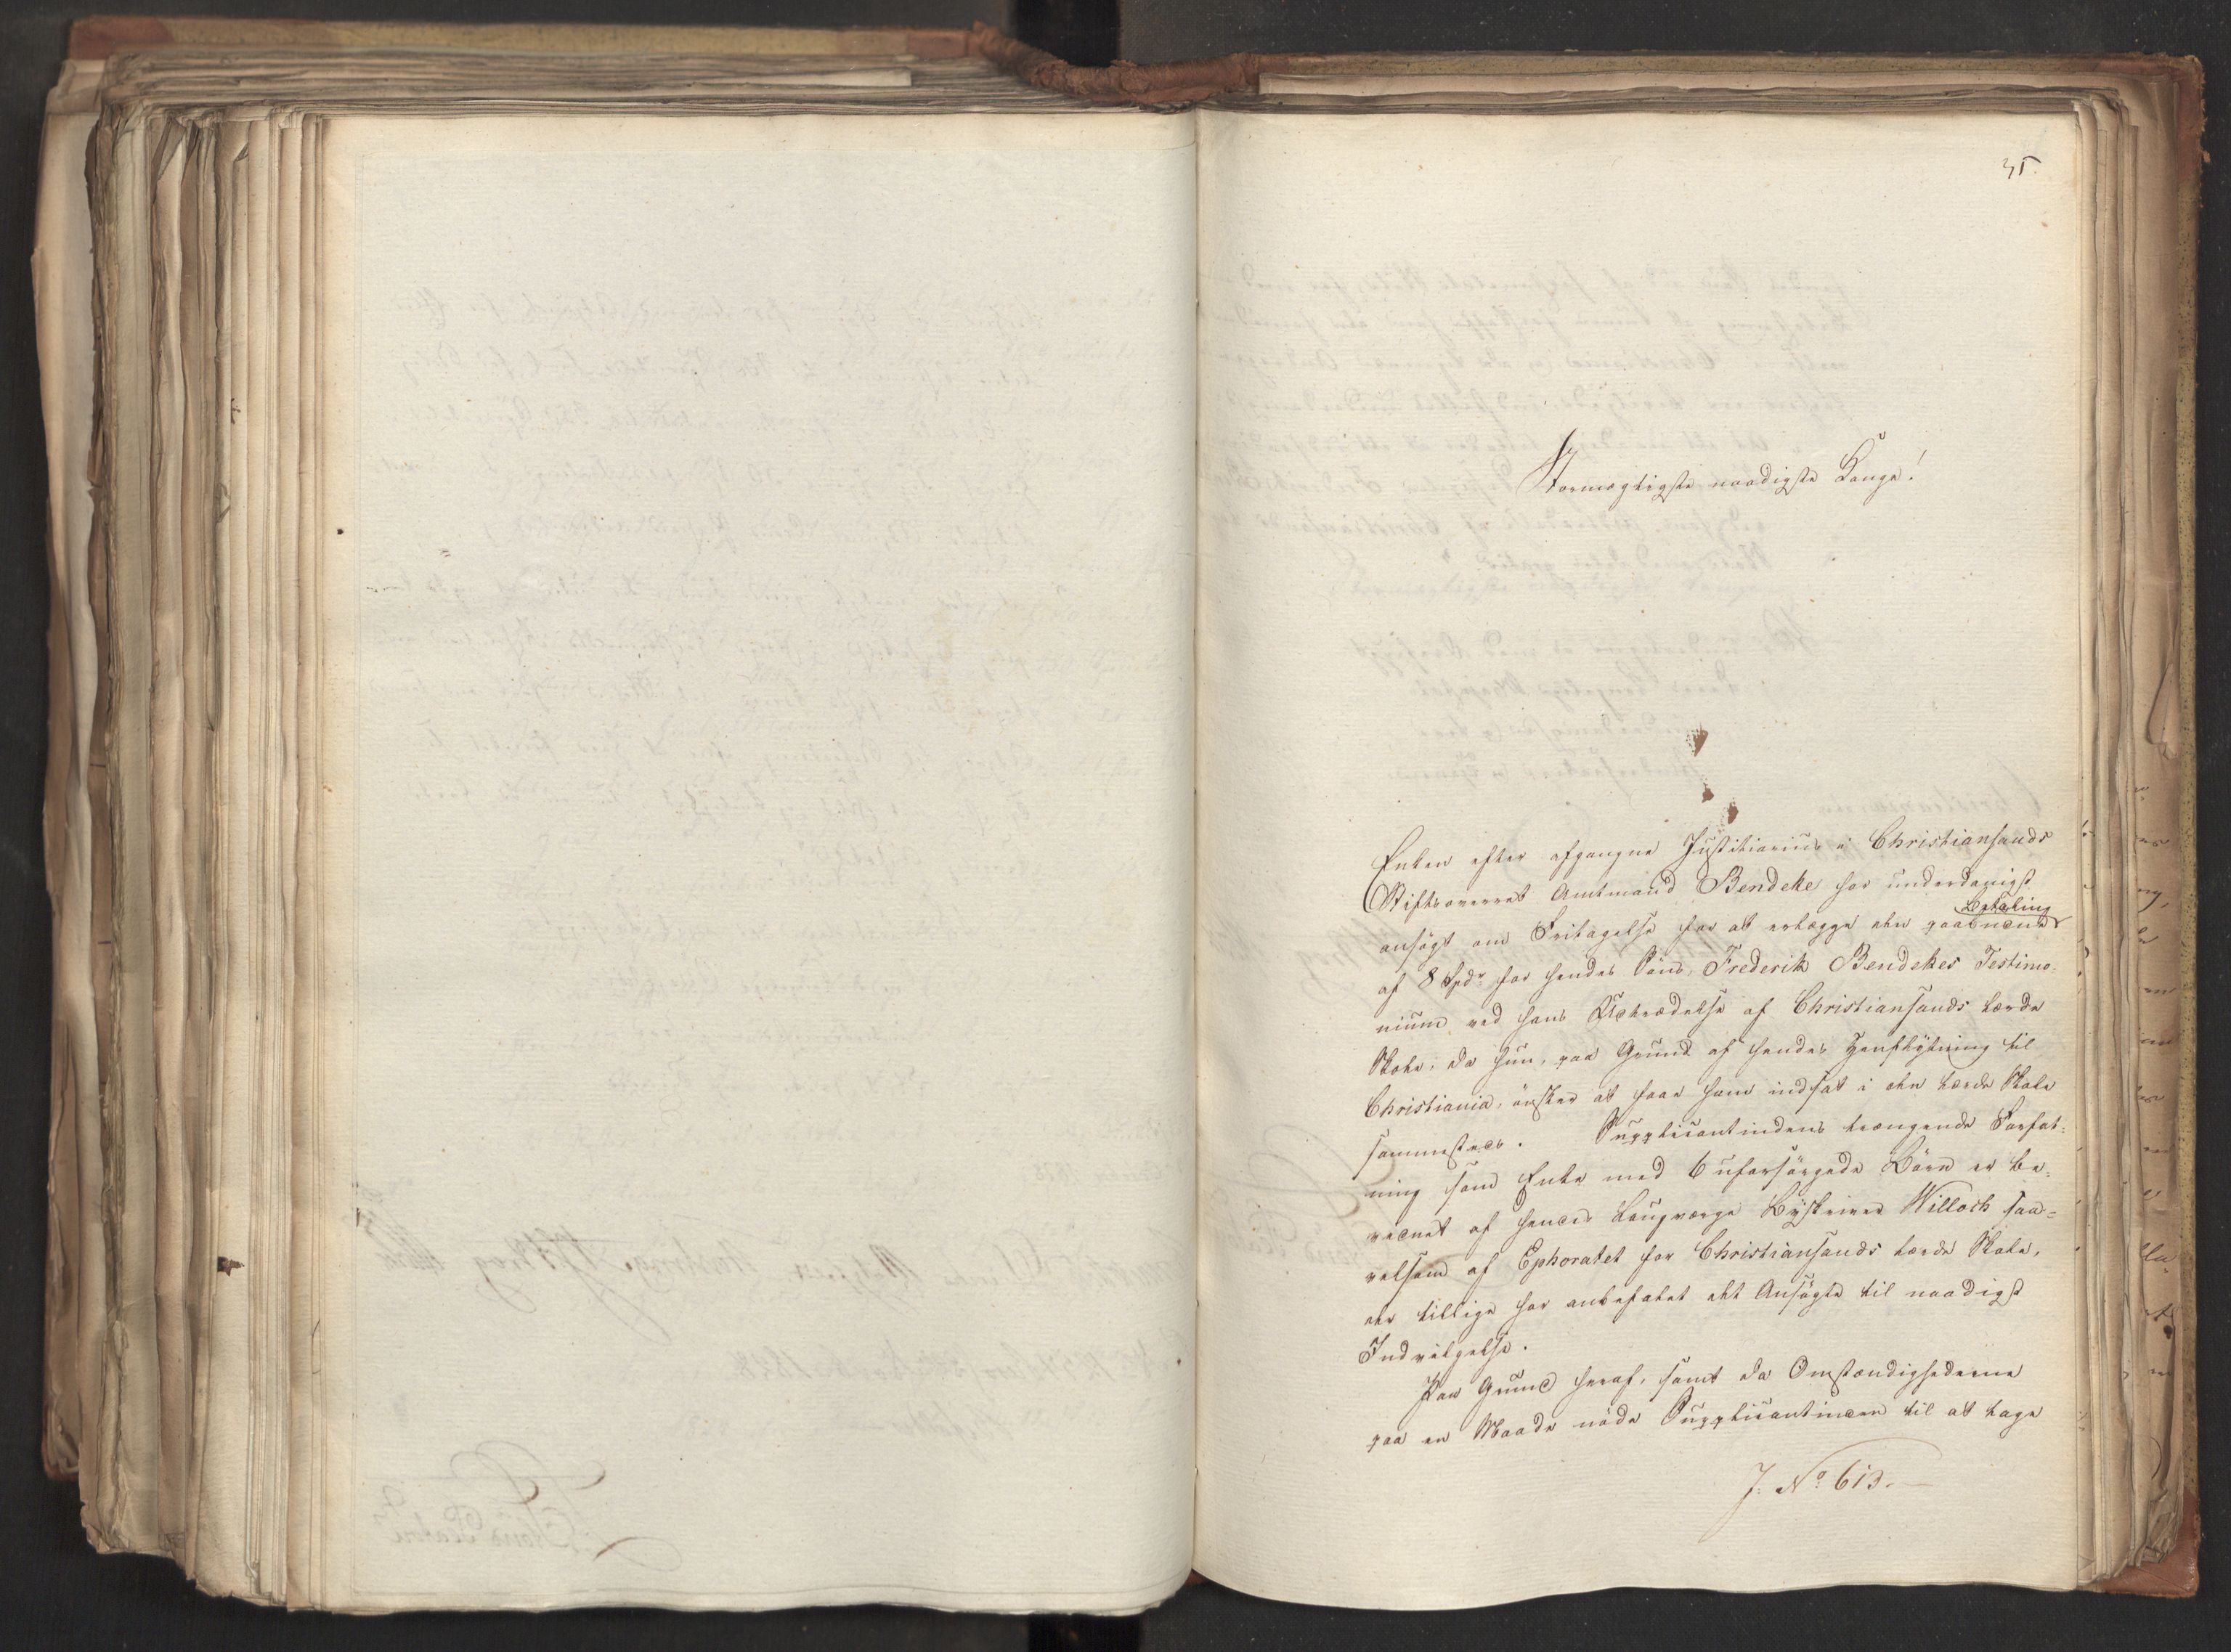 35.
Stormægtigste naadigste Konge!
Enken efter afgangne Justitiarius i Christiansands
Stiftsoverret Amtmand Bendeke har underdanigst
Betaling
ansögt om Fritagelse for at erlægge den paabudne
af 8 Spdr for hendes Söns, Frederik Bendekes Testimo-
nium ved hans Udtrædelse af Christiansands lærde
Skole, da hun, paa Grund af hendes Henflÿtning til
Christiania, önsker at faae ham indsat i den lærde Skole
sammesteds. Supplicantindens trængende Forfat-
ning som Enke med 6 uforsörgede Börn er be-
vidnet af hendes Laugværge Bÿskriver Willoch saa-
velsom af Ephoratet for Christiansands lærde Skole,
der tillige har anbefalet det Ansögte til naadigst
Indvilgelse.
Paa Grund heraf, samt da Omstændighederne
paa en Maade nöde Supplicantinden til at tage
J. No 613.